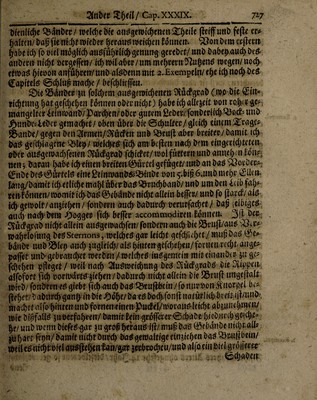 Ander Theil / Cap. XXXIX. 727
dienliche Bänder / welche die ausgewichenen Theile steiff und feste er-
halten / daß sie nicht wieder heraus weichen können. Von dem erstern
habe ich so viel möglich ausführlich genung geredet / und dabey auch des
andern nicht vergessen / ich wil aber / um mehrern Nutzens wegen / noch
etwas hiervon anführen / und alsdenn mit 2. Exempeln / ehe ich noch des
Capitels Schluß mache / beschliessen.
Die Bänder zu solchem ausgewichenen Rückgrad (wo die Ein-
richtung hat geschehen können oder nicht) habe ich allezeit von roher ge-
mangleter Leinwand / Parchen / oder gutem Leder / sonderlich Bock- und
Hunde-Leder gemachet / oben über die Schulter / gleich einem Trage-
Bande / gegen den Armen / Rücken und Brust aber breiter / damit ich
das geschlagene Bley / welches sich am besten nach dem eingerichteten
oder ausgewachsenen Rückgrad schicket / wol füttern und annehen kön-
nen; daran habe ich einen breiten Gürtel gefüget / und an das Vorder-
Ende des Gürtels eine Leinwands Binde von 5. biß 6. und mehr Ellen
lang / damit ich etliche mahl über das Bruchband / und um den Leib fah-
ren können / womit ich das Gebände nicht allein besser / und so starck / als
ich gewolt / anziehen / sondern auch dadurch verursachet / daß selbiges
auch nach dem Hogger sich besser accommodiren können. Ist der
Rückgrad nicht allein ausgewachsen / sondern auch die Brust / aus Ver-
wahrlosung des Sternons / welches gar leicht geschicht / muß das Ge-
bände und Bley auch zugleich / als hinten geschehen / fornen recht ange-
passet und gebrauchet werden / welches insgemein mit einander zu ge-
schehen pfleget / weil nach Ausweichung des Rückgrads die Rippen
alsofort sich vorwärts ziehen / dadurch nicht allein die Brust ungestalt
wird / sondern es giebt sich auch das Brustbein / so nur von Knorpel be-
stehet / dadurch gantz in die Höhe / da es doch sonst natürlich breit ist / und
machet also hinten und fornen einen Puckel / woraus leicht abzunehmen /
wie dißfalls zu verfahren / damit kein grösserer Schade hiedurch gesche-
he / und wenn dieses gar zu groß heraus ist / muß das Gebände nicht all-
zu hart seyn / damit nicht durch das gewaltige einziehen das Brustbein /
weil es nicht viel ausstehen kan / gar zerbrochen / und also ein viel grösserer
Schaden